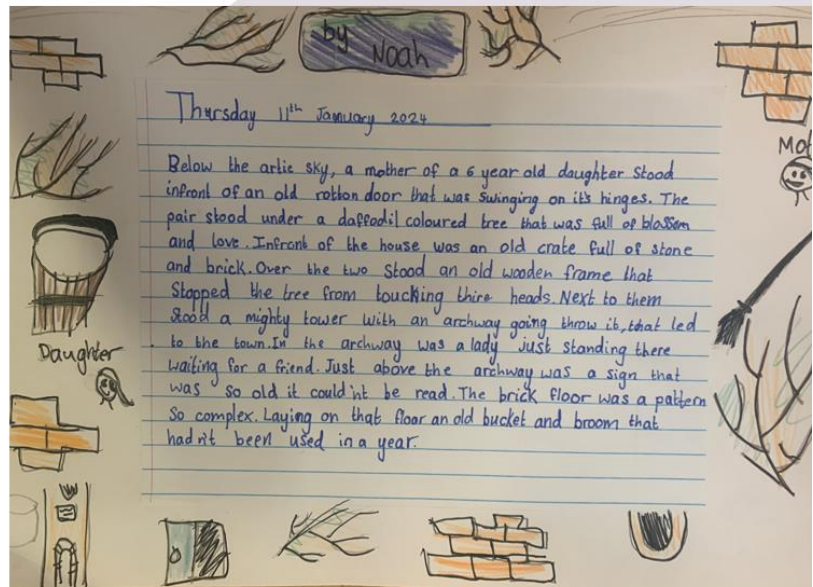 by
Noah
Thursday 11th January 2024
Below the artic sky, a mother of a 6 year old daughter stood
infront of an old rotton door that was swinging on it's hinges. The
pair stood under a daffodil coloured tree that was full of blossom
and love. Infront of the house was an old crate full of stone
and brick. Over the two stood an old wooden frame that
stopped the tree from touching thire heads. Next to them
stood a mighty tower with an archway going throw it, that led
to the town. In the archway was a lady just standing there
waiting for a friend. Just above the archway was a sign that
was so old it could'nt be read. The brick floor was a pattern
so complex. Laying on that floor an old bucket and broom that
had'nt been used in a year.
Daughter